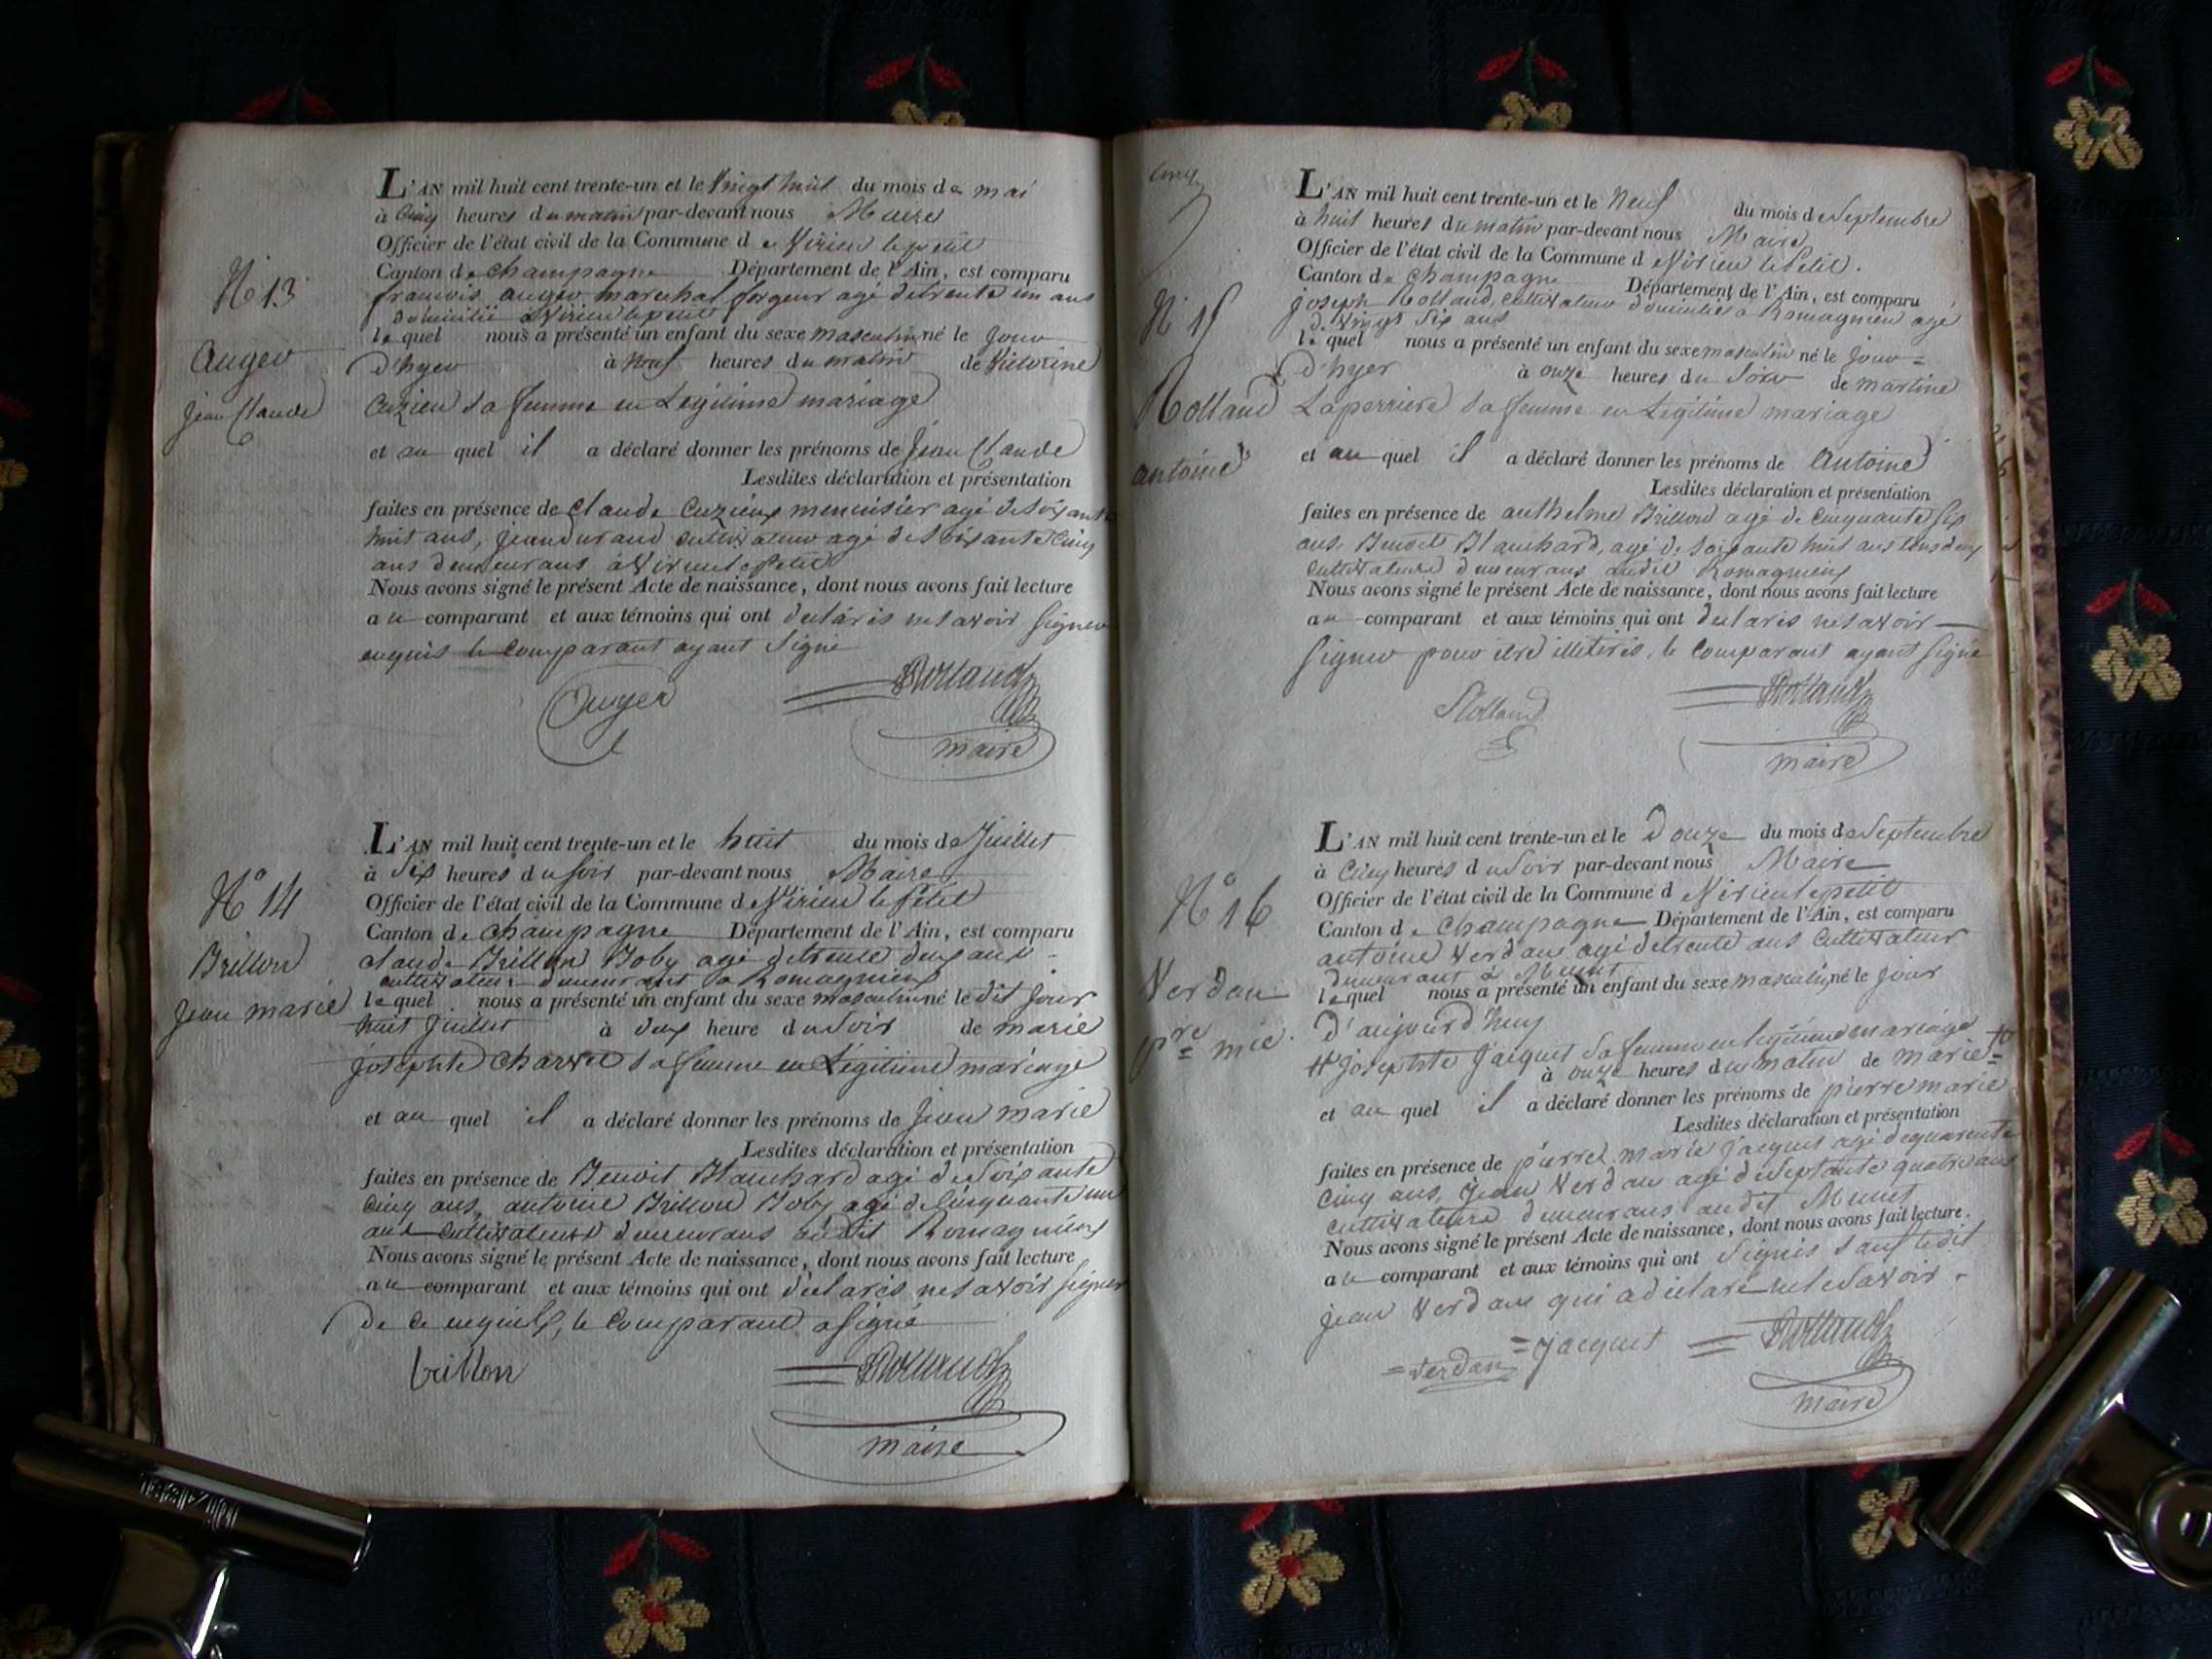 L'AN mil huit cent trente-un et le vingt huit du mois de mai
à cinq heures du matin par-devant nous Maire
Officier de l'état civil de la Commune de Virieu le petit
N° 13
Canton de champagne Département de l'Ain, est comparu
francois auger marechal forgeur agé de trente un ans
domicilié a Virieu le petit
lequel nous a présenté un enfant du sexe masculin né le jour
auger
d'hyer à neuf heures du matin de Victorine
jean Claude
Cuzieu sa femme en Légitime mariage
et au quel il a déclaré donner les prénoms de jean Claude
Lesdites déclaration et présentation
faites en présence de claude Cuzieux menuisier agé de soixante
huit ans, jean durand cultivateur agé de soixante cinq
ans demeurans à Virieu le petit
Nous avons signé le présent Acte de naissance, dont nous avons fait lecture
au comparant et aux témoins qui ont declarés ne savoir signer
enquis le comparant ayant signé
Auger Rolland
maire
L'AN mil huit cent trente-un et le huit du mois de juillet
à six heures du soir par-devant nous Maire
N° 14
Officier de l'état civil de la Commune de Virieu le petit
Canton de champagne Département de l'Ain, est comparu
Brillon
claude Brillon Boby agé de trente deux ans
cultivateur demeurant a Romagnieux
jean marie
lequel nous a présenté un enfant du sexe masculin né le dit jour
huit juillet à deux heure du soir de marie
josephte Charvet sa femme en Légitime mariage
et au quel il a déclaré donner les prénoms de jean marie
Lesdites déclaration et présentation
faites en présence de Benoit Blanchard agé de soixante
cinq ans, antoine Brillon Boby agé de cinquante un
ans cultivateurs demeurans audit Romagnieux
Nous avons signé le présent Acte de naissance, dont nous avons fait lecture
au comparant et aux témoins qui ont déclarés ne savoir signer
de ce enquis, le comparant a signé
brillon Rolland
maire
cinq
L'AN mil huit cent trente-un et le neuf du mois de Septembre
à huit heures du matin par-devant nous Maire
Officier de l'état civil de la Commune de Virieu le Petit.
Canton de Champagne Département de l'Ain, est comparu
N° 15
joseph Rolland, cultivateur domicilié a Romagnieu agé
de vingt six ans
lequel nous a présenté un enfant du sexe masculin né le jour =
d'hyer à onze heures du Soir de martine
Rolland
Laperriere sa femme en Légitime mariage
antoine
et au quel il a déclaré donner les prénoms de Antoine
Lesdites déclaration et présentation
faites en présence de anthelme Brillon agé de cinquante six
ans. Benoit Blanchard, agé de soixante huit ans tous deux
cultivateurs demeurans audit Romagnieux
Nous avons signé le présent Acte de naissance, dont nous avons fait lecture
au comparant et aux témoins qui ont declarés ne savoir
signer pour être illiterés, le comparant ayant signé
Rolland Rolland
maire
L'AN mil huit cent trente-un et le douze du mois de Septembre
à cinq heures du Soir par-devant nous Maire
N° 16
Officier de l'état civil de la Commune de Virieu le petit
Canton de Champagne Département de l'Ain, est comparu
antoine Verdau agé de trente ans cultivateur
demeurant à Munet
Verdau
lequel nous a présenté un enfant du sexe masculin né le jour
d'aujourd'huy
pre mie.
# josephte jacquet sa femme en legitime mariage
à onze heures du matin de marie #
et au quel il a déclaré donner les prénoms de pierre marie
Lesdites déclaration et présentation
faites en présence de pierre marie jacquet agé de quarente
cinq ans, jean Verdau agé de septante quatre ans
cultivateurs demeurans audit Munet
Nous avons signé le présent Acte de naissance, dont nous avons fait lecture.
au comparant et aux témoins qui ont signés sauf ledit
jean Verdau qui a déclaré ne le savoir
= Verdau = jacquet Rolland
maire